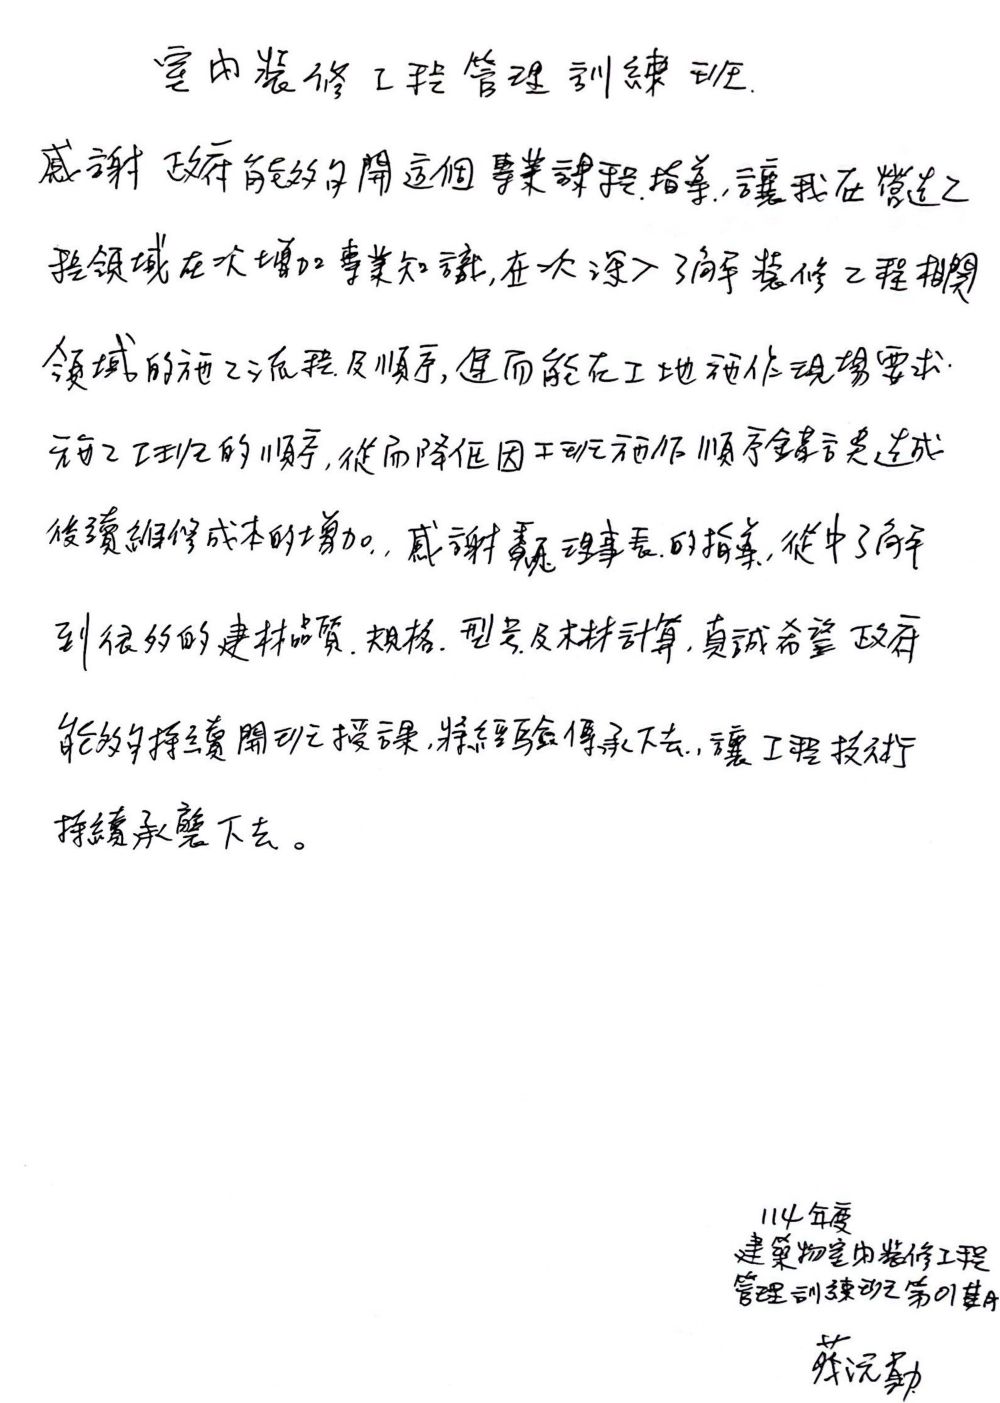 室內裝修工程管理訓練班.
感謝政府能夠開這個專業課程.指導.,讓我在營造工
程領域在次增加專業知識,在次深入了解裝修工程相關
領域的施工流程及順序,進而能在工地施作現場要求.
施工工班的順序,從而降低因工班施作順序錯誤造成
後續維修成本的增加.,感謝理事長.的指導,從中了解
到很多的建材品質.規格.型号及木材計算,真誠希望政府
能夠持續開班授課,將經驗傳承下去.,讓工程技術
持續承襲下去。
114年度
建築物室內裝修工程
管理訓練班第01期
蔡沅勳